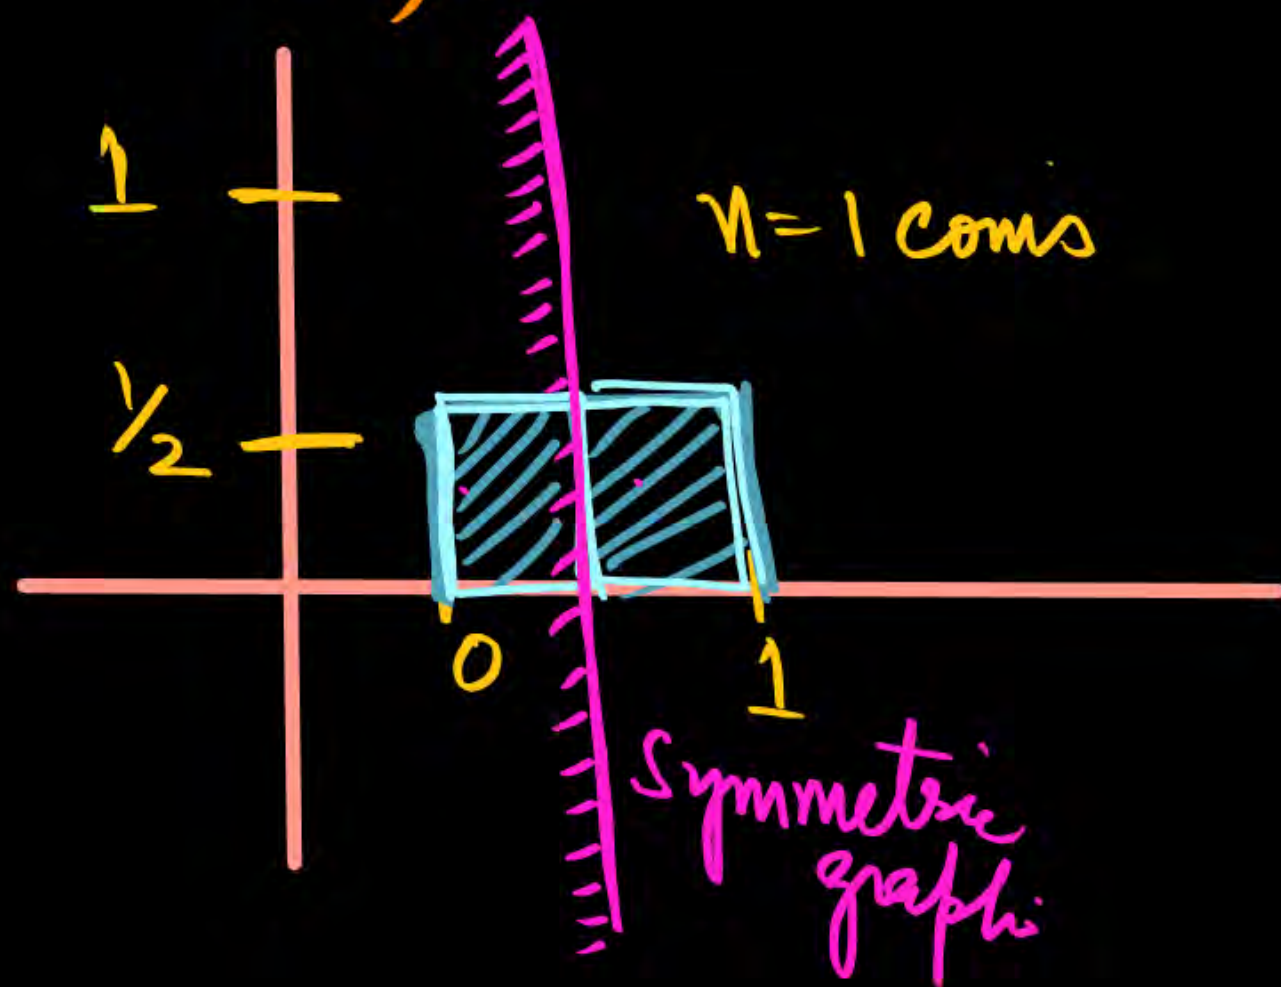 1
n=1 coins
1/2
0
1
Symmetric
graph.